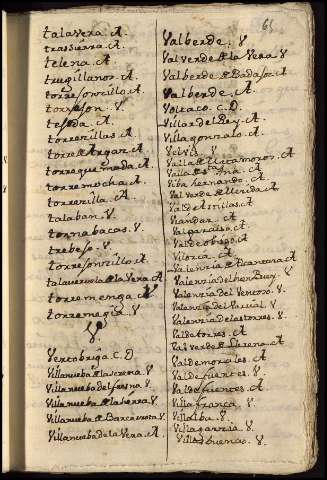 65
talavera. A.
trassierra. A.
telena. A.
trugillanos. A.
torresoncillo. A.
torreson. V.
tesoda. A.
torrezillas. A.
torre de Argaz. A
torrequemada. A.
torremocha. A.
torrezilla. A.
talaban. V.
tornabacas. V.
trebeso. V.
torresonzillo. A.
talaveruela de la Vera. A
torremenga. V
torremegia. V
Vertobriga C. D.
Villanueba de la Serena. V.
Villanueba del fresno. V.
Villanueba de la sierra. V
Villanueba de Barcarrota. V.
Villanueba de la Vera. A.
Valberde. V
Valverde de la Vera. V
Valberde de Badajoz. A
Valberde. A.
Voltaco. C. D.
Villar del Rey. A.
Villagonzalo. A.
Velvis. V
Villa de Matamoros. A.
Villa de Sta. Ana. A
Viba hernando. A.
Valverde de Merida. A
Val de Arillas. A
Viandar. A
Valparaiso. A.
Valdeobispo. A
Vilorca. A
Valenzia de Alcantara. A
Valenzia del hon Buey. V
Valenzia del Ventoso. V.
Valenzia del Varrial. V
Valenzia de las torres. V.
Valdetorres. A
Valverde de Llerena. A
Valdemorales. A
Valdefuentes. V.
Valdefuentes. A
Villafranca. V
Villalba. V
Villagarzia. V
Villasbuenas. V.